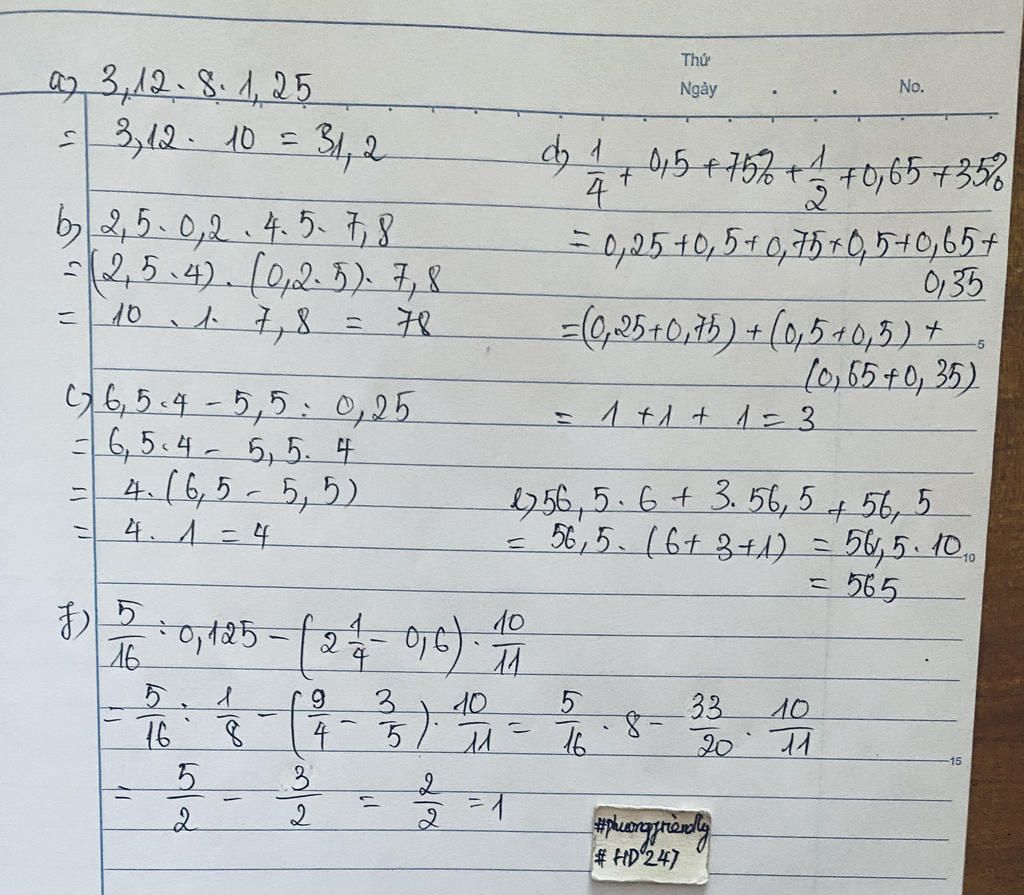 Thứ
Ngày . . No.
a) 3,12 . 8 . 1,25
= 3,12 . 10 = 31,2
b) 2,5 . 0,2 . 4 . 5 . 7,8
= (2,5 . 4) . (0,2 . 5) . 7,8
= 10 . 1 . 7,8 = 78
c) 6,5 . 4 - 5,5 : 0,25
= 6,5 . 4 - 5,5 . 4
= 4 . (6,5 - 5,5)
= 4 . 1 = 4
d) 1/4 + 0,5 + 75% + 1/2 + 0,65 + 35%
= 0,25 + 0,5 + 0,75 + 0,5 + 0,65 +
0,35
= (0,25 + 0,75) + (0,5 + 0,5) +
5
(0,65 + 0,35)
= 1 + 1 + 1 = 3
e) 56,5 . 6 + 3 . 56,5 + 56,5
= 56,5 . (6 + 3 + 1) = 56,5 . 10
10
= 565
f) 5/16 : 0,125 - (2 1/4 - 0,6) . 10/11
= 5/16 : 1/8 - (9/4 - 3/5) . 10/11 = 5/16 . 8 - 33/20 . 10/11
15
= 5/2 - 3/2 = 2/2 = 1
#phuongfriendly
#HD247